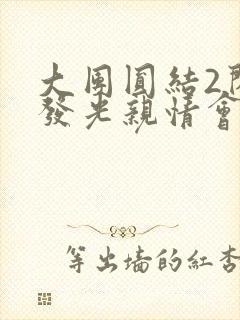 大團圓結2
發光親情會
等出墙的紅杏